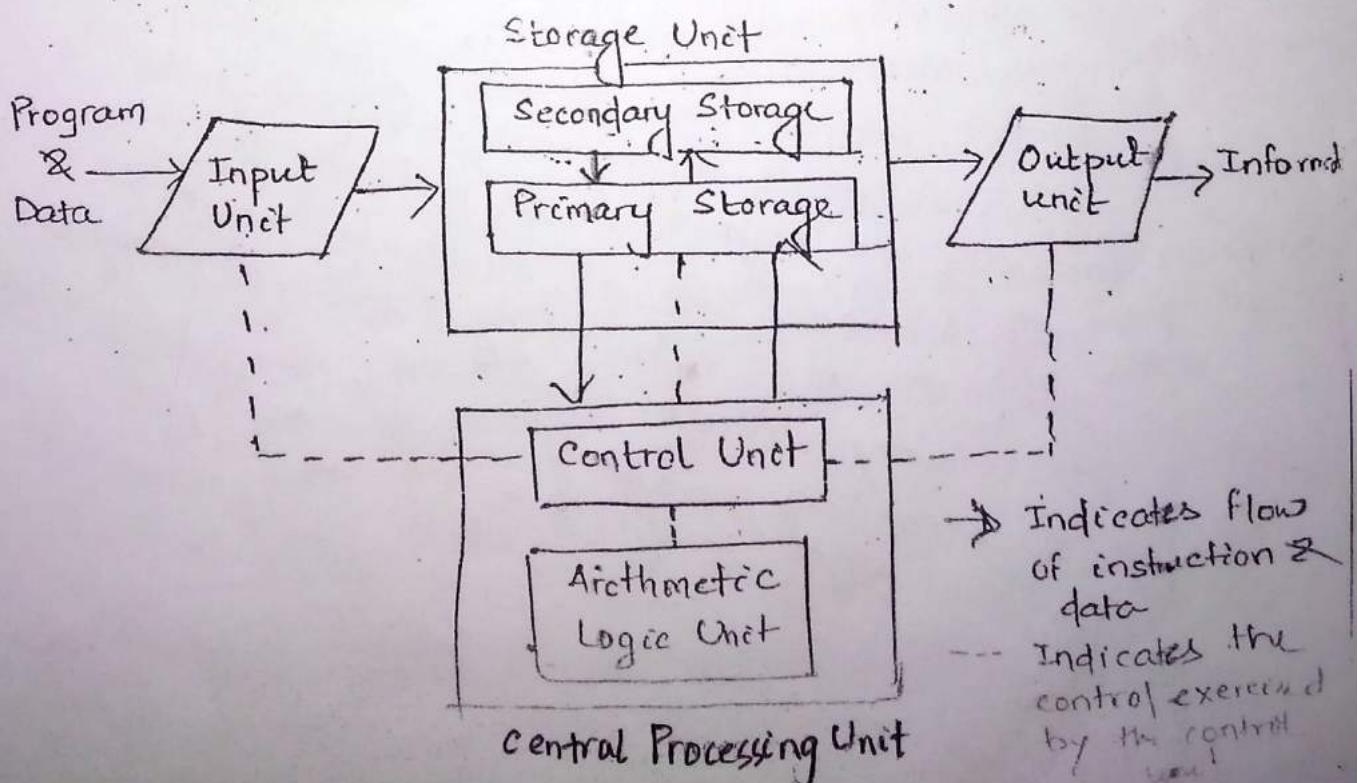 Storage Unit
Program
&
Data
Input
Unit
Secondary Storage
Primary Storage
Output
unit
Informd
Control Unit
Aricthmetic
Logic Unit
Central Processing Unit
Indicates flow
of instruction &
data
Indicates the
control exercised
by the control